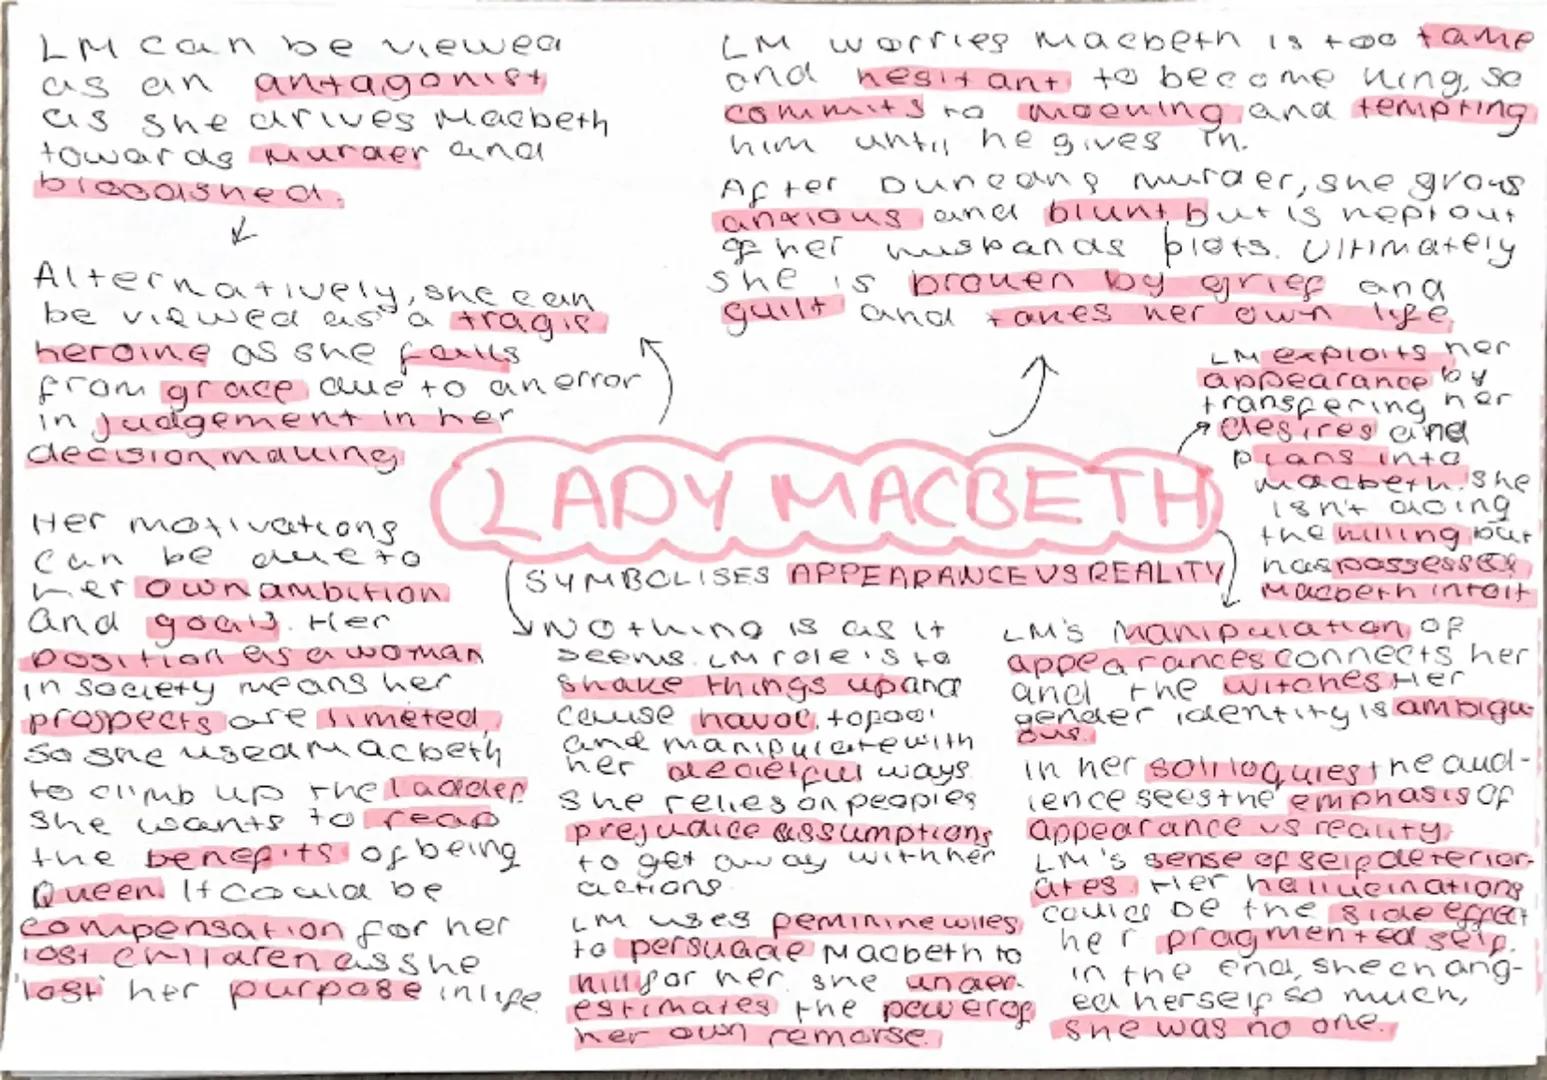 LM can be viewed
as an antagonist
as she drives Macbeth
towards murder and
bloodshed.
Alternatively, she can
be viewed as a tragic
heroine as she falls
from grace due to an error
in judgement in her
decision making
Her motivations
can be due to
her own ambition
and goals. Her
position as a woman
in society means her
prospects are limeted,
so she used Macbeth
to climb up the ladder.
She wants to reap
the benefits of being
Queen. It could be
compensation for her
lost children as she
'lost' her purpose in life.
LM worries Macbeth is too tame
and hesitant to become king, so
commits to mocking and tempting
him until he gives in.
After Duncans murder, she grows
anxious and blunt but is kept out
of her husbands plots. Ultimately
she is broken by grief and
guilt and takes her own life.
LADY MACBETH
SYMBOLISES APPEARANCE VS REALITY
Nothing is as it
seems. LM role is to
shake things up and
cause havoc, to fool
and manipulate with
her decietful ways.
She relies on peoples
prejudice assumptions
to get away with her
actions.
LM uses feminine wiles
to persuade Macbeth to
kill for her. She under-
estimates the power of
her own remorse.
LM exploits her
appearance by
transfering her
desires and
plans into
Macbeth. She
isn't doing
the killing but
has possessed
Macbeth into it
LM's manipulation of
appearances connects her
and the witches. Her
gender identity is ambigu-
ous.
In her soliloquies the aud-
ience sees the emphasis of
appearance vs reality.
LM's sense of self deterior-
ates. Her hallucinations
could be the side effect
her fragmented self.
In the end, she chang-
ed herself so much,
she was no one.